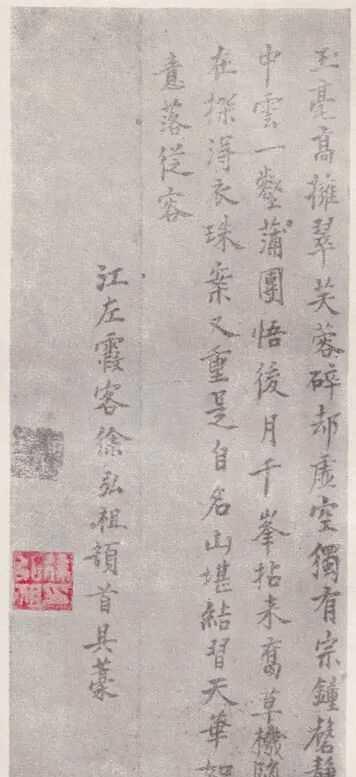 玉毫高擁翠芙蓉碎却虛空獨有宗鐘磬靜
中雲一壑蒲團悟後月千峯拈来舊草機
在探得衣珠案又重是自名山堪結習天華
意落從容
江左霞客徐弘祖頓首具藁